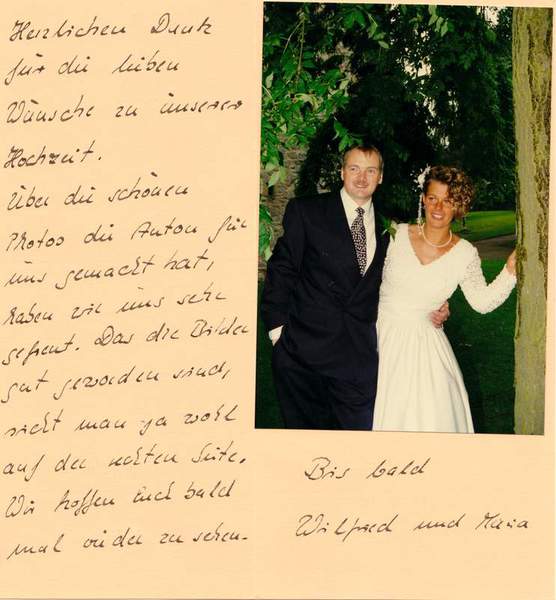 Herzlichen Dank
für die lieben
Wünsche zu unserer
Hochzeit.
Über die schönen
Photos die Anton für
uns gemacht hat,
haben wir uns sehr
gefreut. Das die Bilder
gut geworden sind,
sieht man ja wohl
auf der rechten Seite.
Wir hoffen Euch bald
mal wieder zu sehen.
Bis bald
Wilfried und Maria